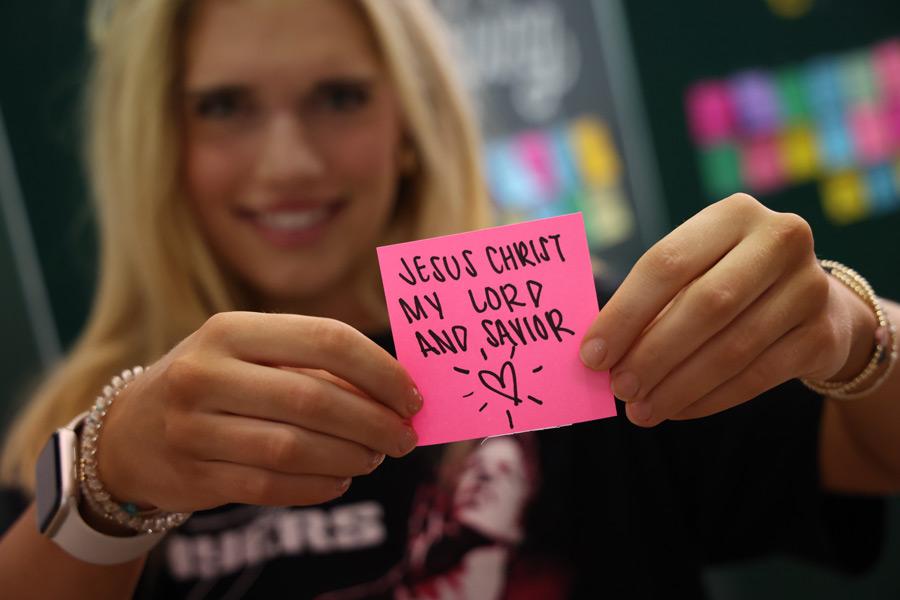 JESUS CHRIST
MY LORD
AND SAVIOR